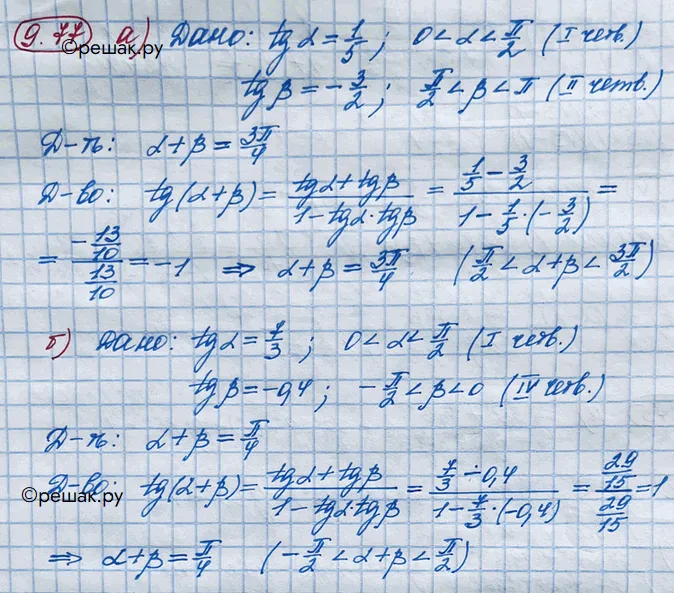 9.77 а) Дано: tg α = 1/5 ; 0 < α < π/2 (I четв.)
©решак.ру
tg β = -3/2 ; π/2 < β < π (II четв.)
Д-ть: α + β = 3π/4
Д-во: tg(α+β) = (tgα + tgβ)/(1 - tgα·tgβ) = (1/5 - 3/2)/(1 - 1/5·(-3/2)) =
= (-13/10)/(13/10) = -1 ⇒ α + β = 3π/4 (π/2 < α+β < 3π/2)
б) Дано: tg α = 7/3 ; 0 < α < π/2 (I четв.)
tg β = -0,4 ; -π/2 < β < 0 (IV четв.)
Д-ть: α + β = π/4
Д-во: tg(α+β) = (tgα + tgβ)/(1 - tgα·tgβ) = (7/3 - 0,4)/(1 - 7/3·(-0,4)) = (29/15)/(29/15) = 1
©решак.ру
⇒ α + β = π/4 (-π/2 < α+β < π/2)